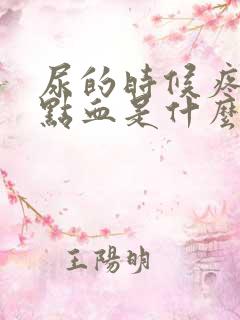 尿的時候疼
點血是什麼
王陽明